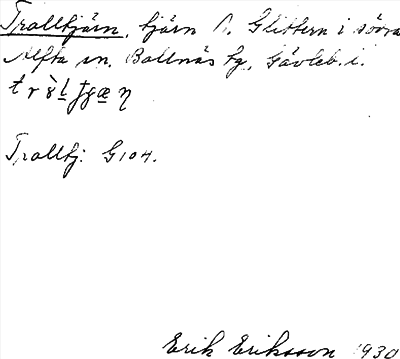 Trolltjärn, tjärn n. Glittern i södra
Alfta sn. Bollnäs tg. Gävleb. l.
Trolltj: G104.
Erik Eriksson 1930